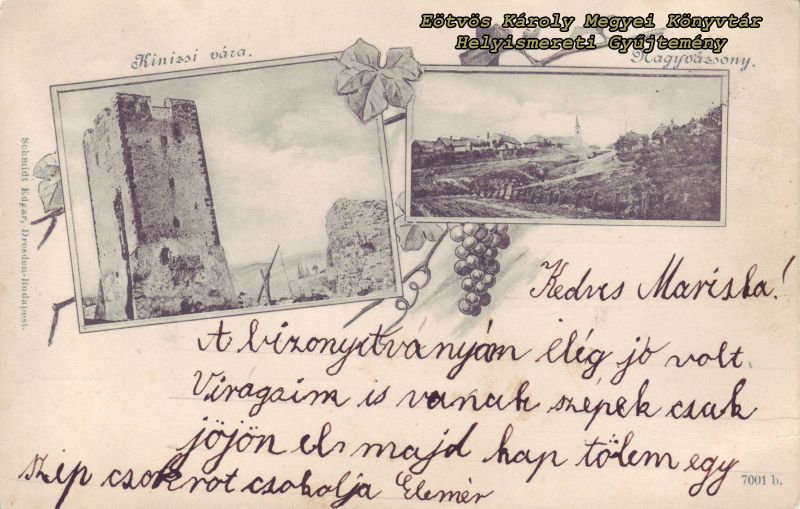 Eötvös Károly Megyei Könyvtár
Helyismereti Gyűjtemény
Kinizsi vára.
Nagyvázsony.
Schmidt Edgar, Dresden-Budapest.
Kedves Mariska!
A bizonyitványám elég jó volt
Viragaim is vanak szépek csak
jöjön el majd kap tölem egy
szép csokrot csokolja Elemér
7001 b.